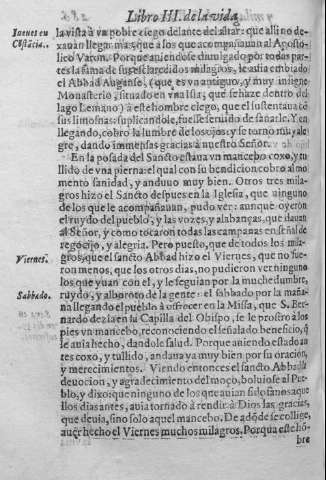 Libro III. de la vida
Iueues en
Cōstācia.
la vista à vn pobre ciego delante del altar: que alli no de-
xauan llegar mas, que a los que acompañauan al Aposto-
lico Varon. Porque aniendose diuulgado por todas par-
tes la fama de sus esclarecidos milagros, le auia embiado
el Abbad Augense, (que es vn antiguo, y muy insigne
Monasterio, situado en vna Isla, que se haze dentro del
lago Lemano) à este hombre ciego, que el sustentaua cō
sus limosnas: suplicandole, fuesse seruido de sanarle. Y en
llegando, cobrò la lumbre de los ojos: y se tornò muy ale-
gre, dando immensas gracias à nuestro Señor.
En la posada del Sancto estaua vn mancebo coxo, y tu-
llido de vna pierna: el qual con su bendicion cobrò al mo-
mento sanidad, y anduuo muy bien. Otros tres mila-
gros hizo el Sancto despues en la Iglesia, que ninguno
de los que le acompañauan, pudo ver: aunque oyeron
el ruydo del pueblo, y las vozes, y alabanças, que dauan
al Señor, y como tocaron todas las campanas en señal de
regocijo, y alegria. Pero puesto, que de todos los mila-
Viernes.
gros, que el sancto Abbad hizo el Viernes, que no fue-
ron menos, que los otros dias, no pudieron ver ninguno
los que yuan con el, y le seguian por la muchedumbre,
Sabbado.
ruydo, y alboroto de la gente: el sabbado por la maña-
na llegando el pueblo à offrecer en la Missa, que S. Ber-
nardo dezia en su Capilla del Obispo, se le prostrò a los
pies vn mancebo, reconociendo el señalado beneficio, q̄
le auia hecho, dandole salud. Porque aniendo estado an
tes coxo, y tullido, andaua ya muy bien por su oracion,
y merecimientos. Viendo entonces el sancto Abbad la
deuocion, y agradecimiento del moço, boluiose al Pue-
blo, y dixo: que ninguno de los que auian sido sanos aque
llos dias antes, auia tornado à rendir à Dios las gracias,
que deuia, sino solo aquel mancebo. De adōde se collige,
auer hecho el Viernes muchos milagros. Porque este hō-
bre